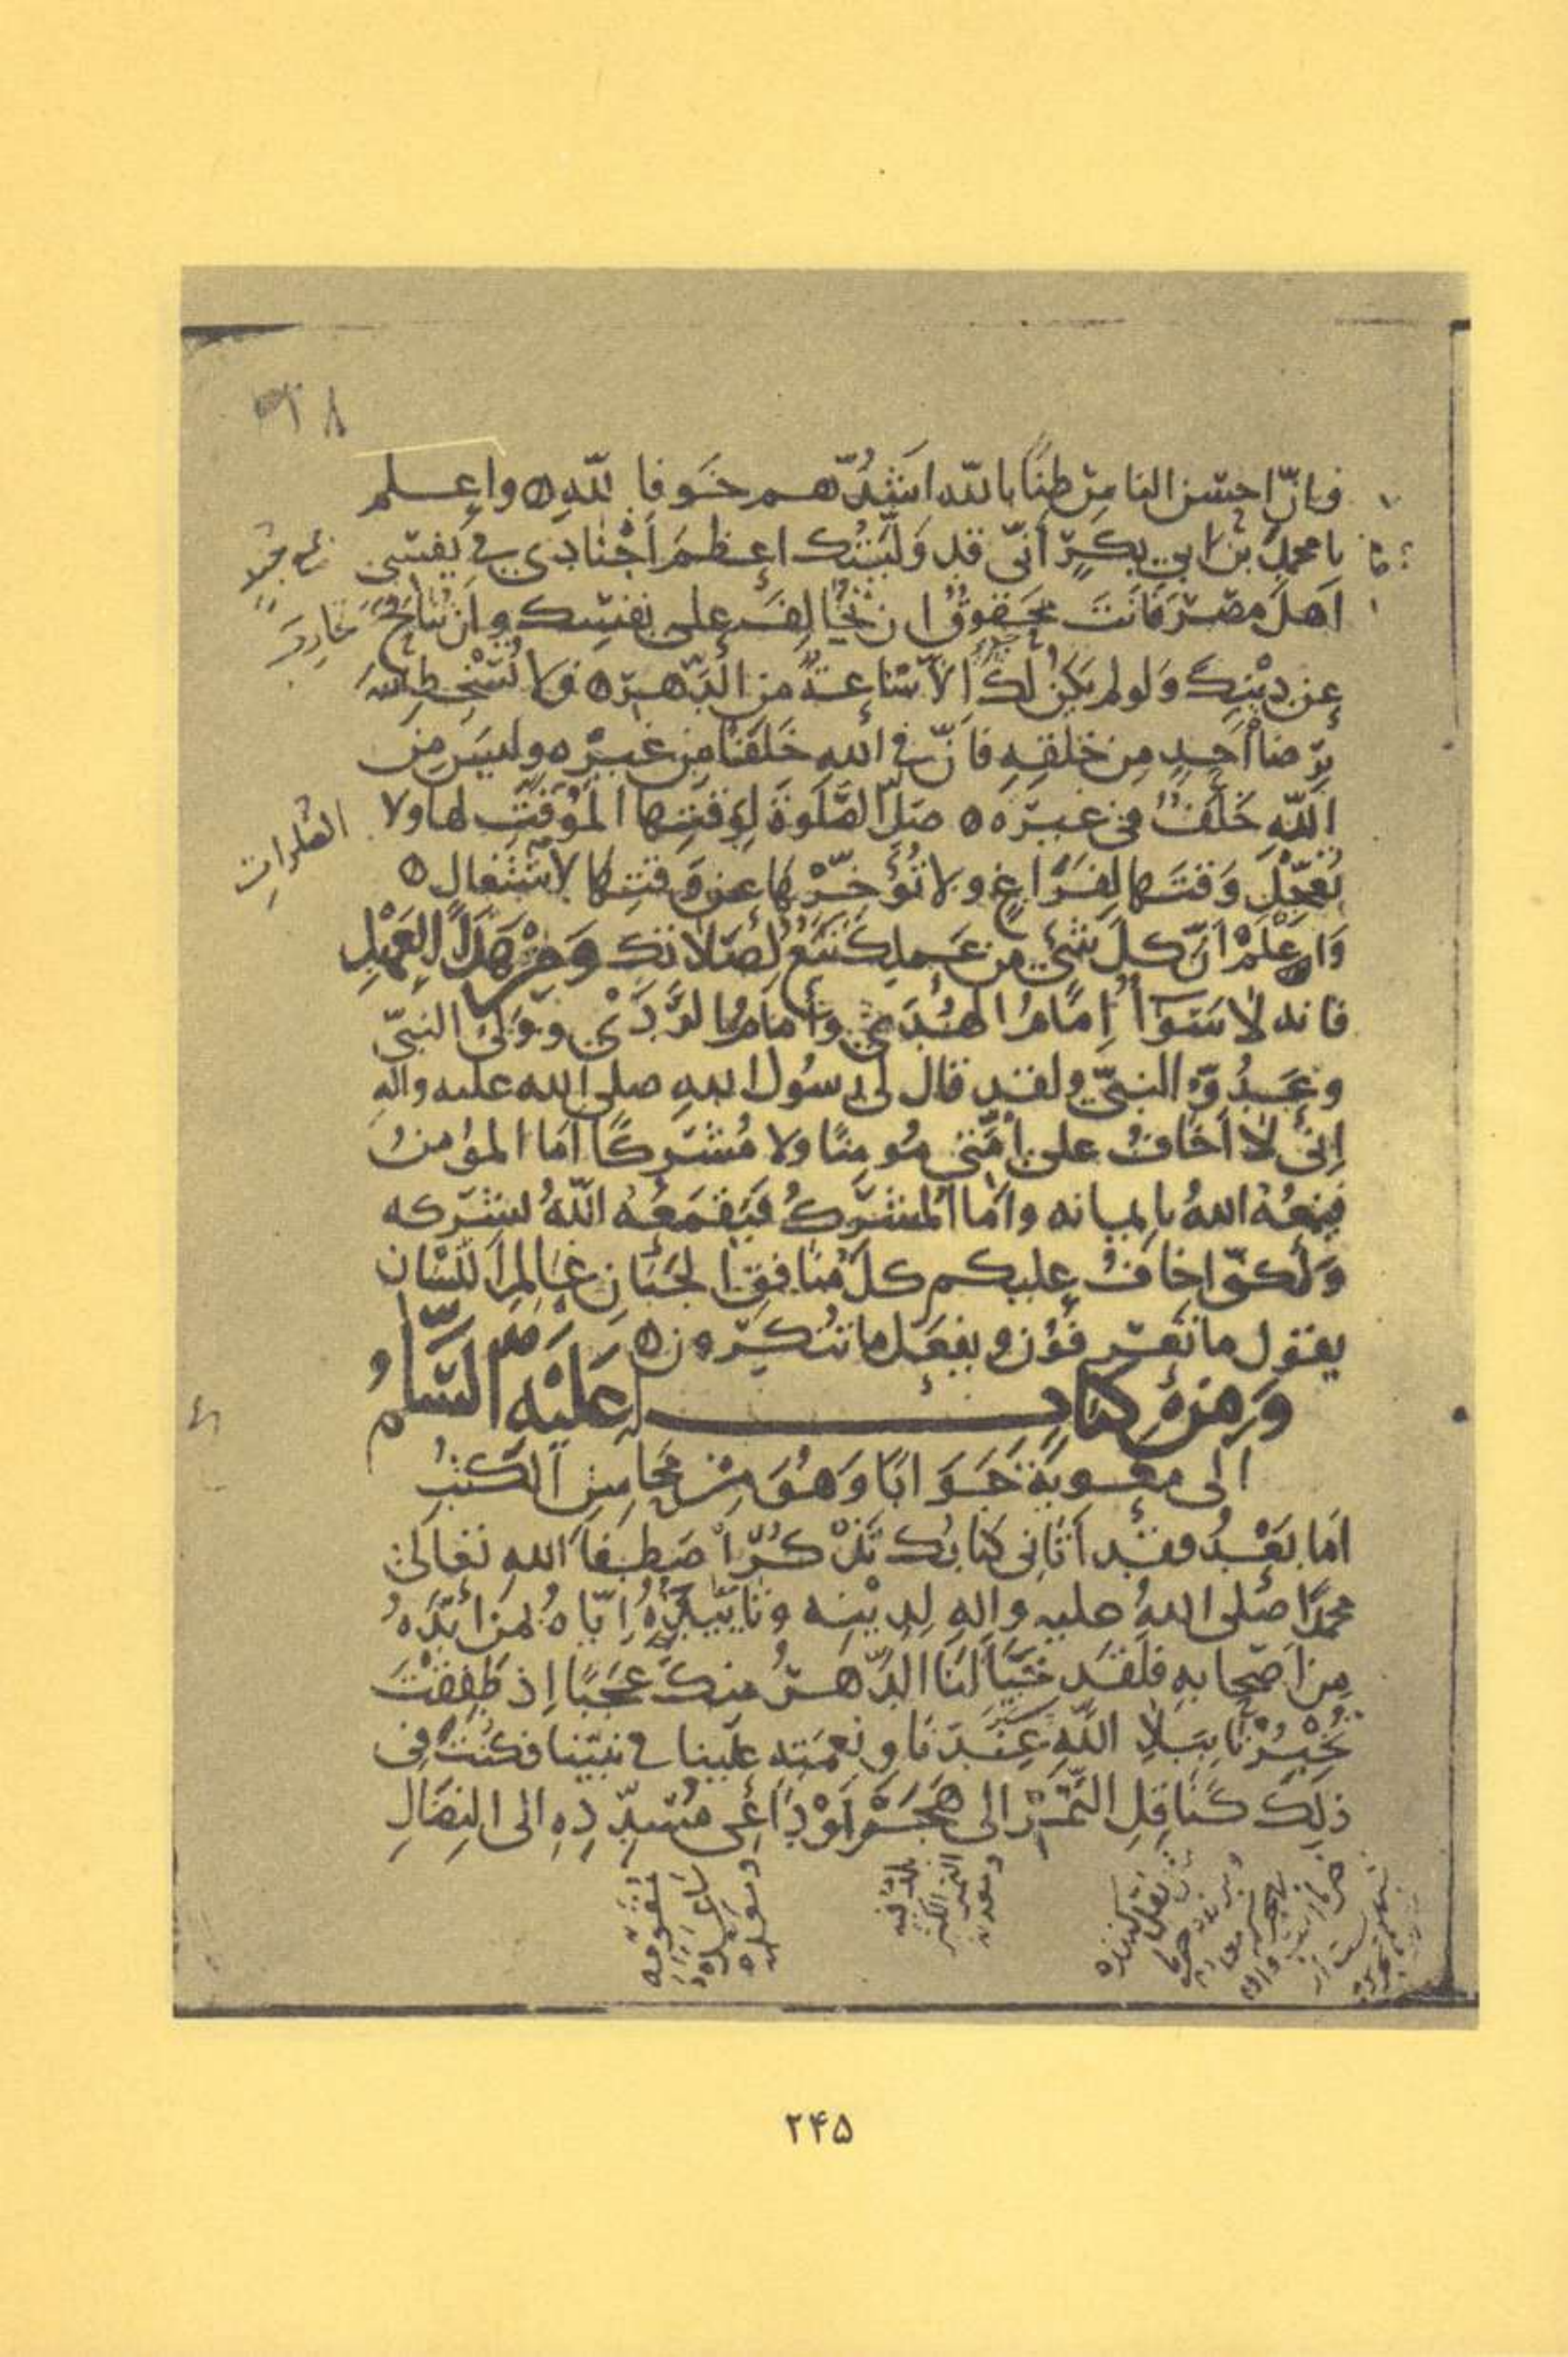 وان احسن الناس ظنا بالله اشدهم خوفا لله واعلم
يا محمد بن ابي بكر أني قد وليتك اعظم أجنادي في نفسي
اهل مصر فانت محقوق ان تخالف على نفسك وان تنافح
عن دينك ولو لم يكن لك الا ساعة من الدهر ولا تسخط الله
برضا أحد من خلقه فان في الله خلفا من غيره وليس من
الله خلف في غيره صل الصلوة لوقتها الموقت لها ولا
تعجل وقتها لفراغ ولا تؤخرها عن وقتها لاشتغال
واعلم أن كل شيء من عملك تبع لصلاتك ومن هذا العهد
فانه لا سوآء إمام الهدى وإمام الردى وولي النبي
وعدو النبي ولقد قال لي رسول الله صلى الله عليه واله
إني لا أخاف على أمتي مؤمنا ولا مشركا اما المؤمن
فيمنعه الله بايمانه واما المشرك فيقمعه الله بشركه
ولكني اخاف عليكم كل منافق الجنان عالم اللسان
يقول ما تعرفون ويفعل ما تنكرون
ومن كتاب له عليه السلام
الى معوية جوابا وهو من محاسن الكتب
اما بعد فقد أتاني كتابك تذكر اصطفاء الله تعالى
محمدا صلى الله عليه واله لدينه وتأييده إياه بمن أيده
من اصحابه فلقد خبأ لنا الدهر منك عجبا إذ طفقت
تخبرنا ببلاء الله عندنا ونعمته علينا في نبينا فكنت في
ذلك كناقل التمر الى هجر أو داعي مسدده الى النضال
الصلوات
۲۴۵